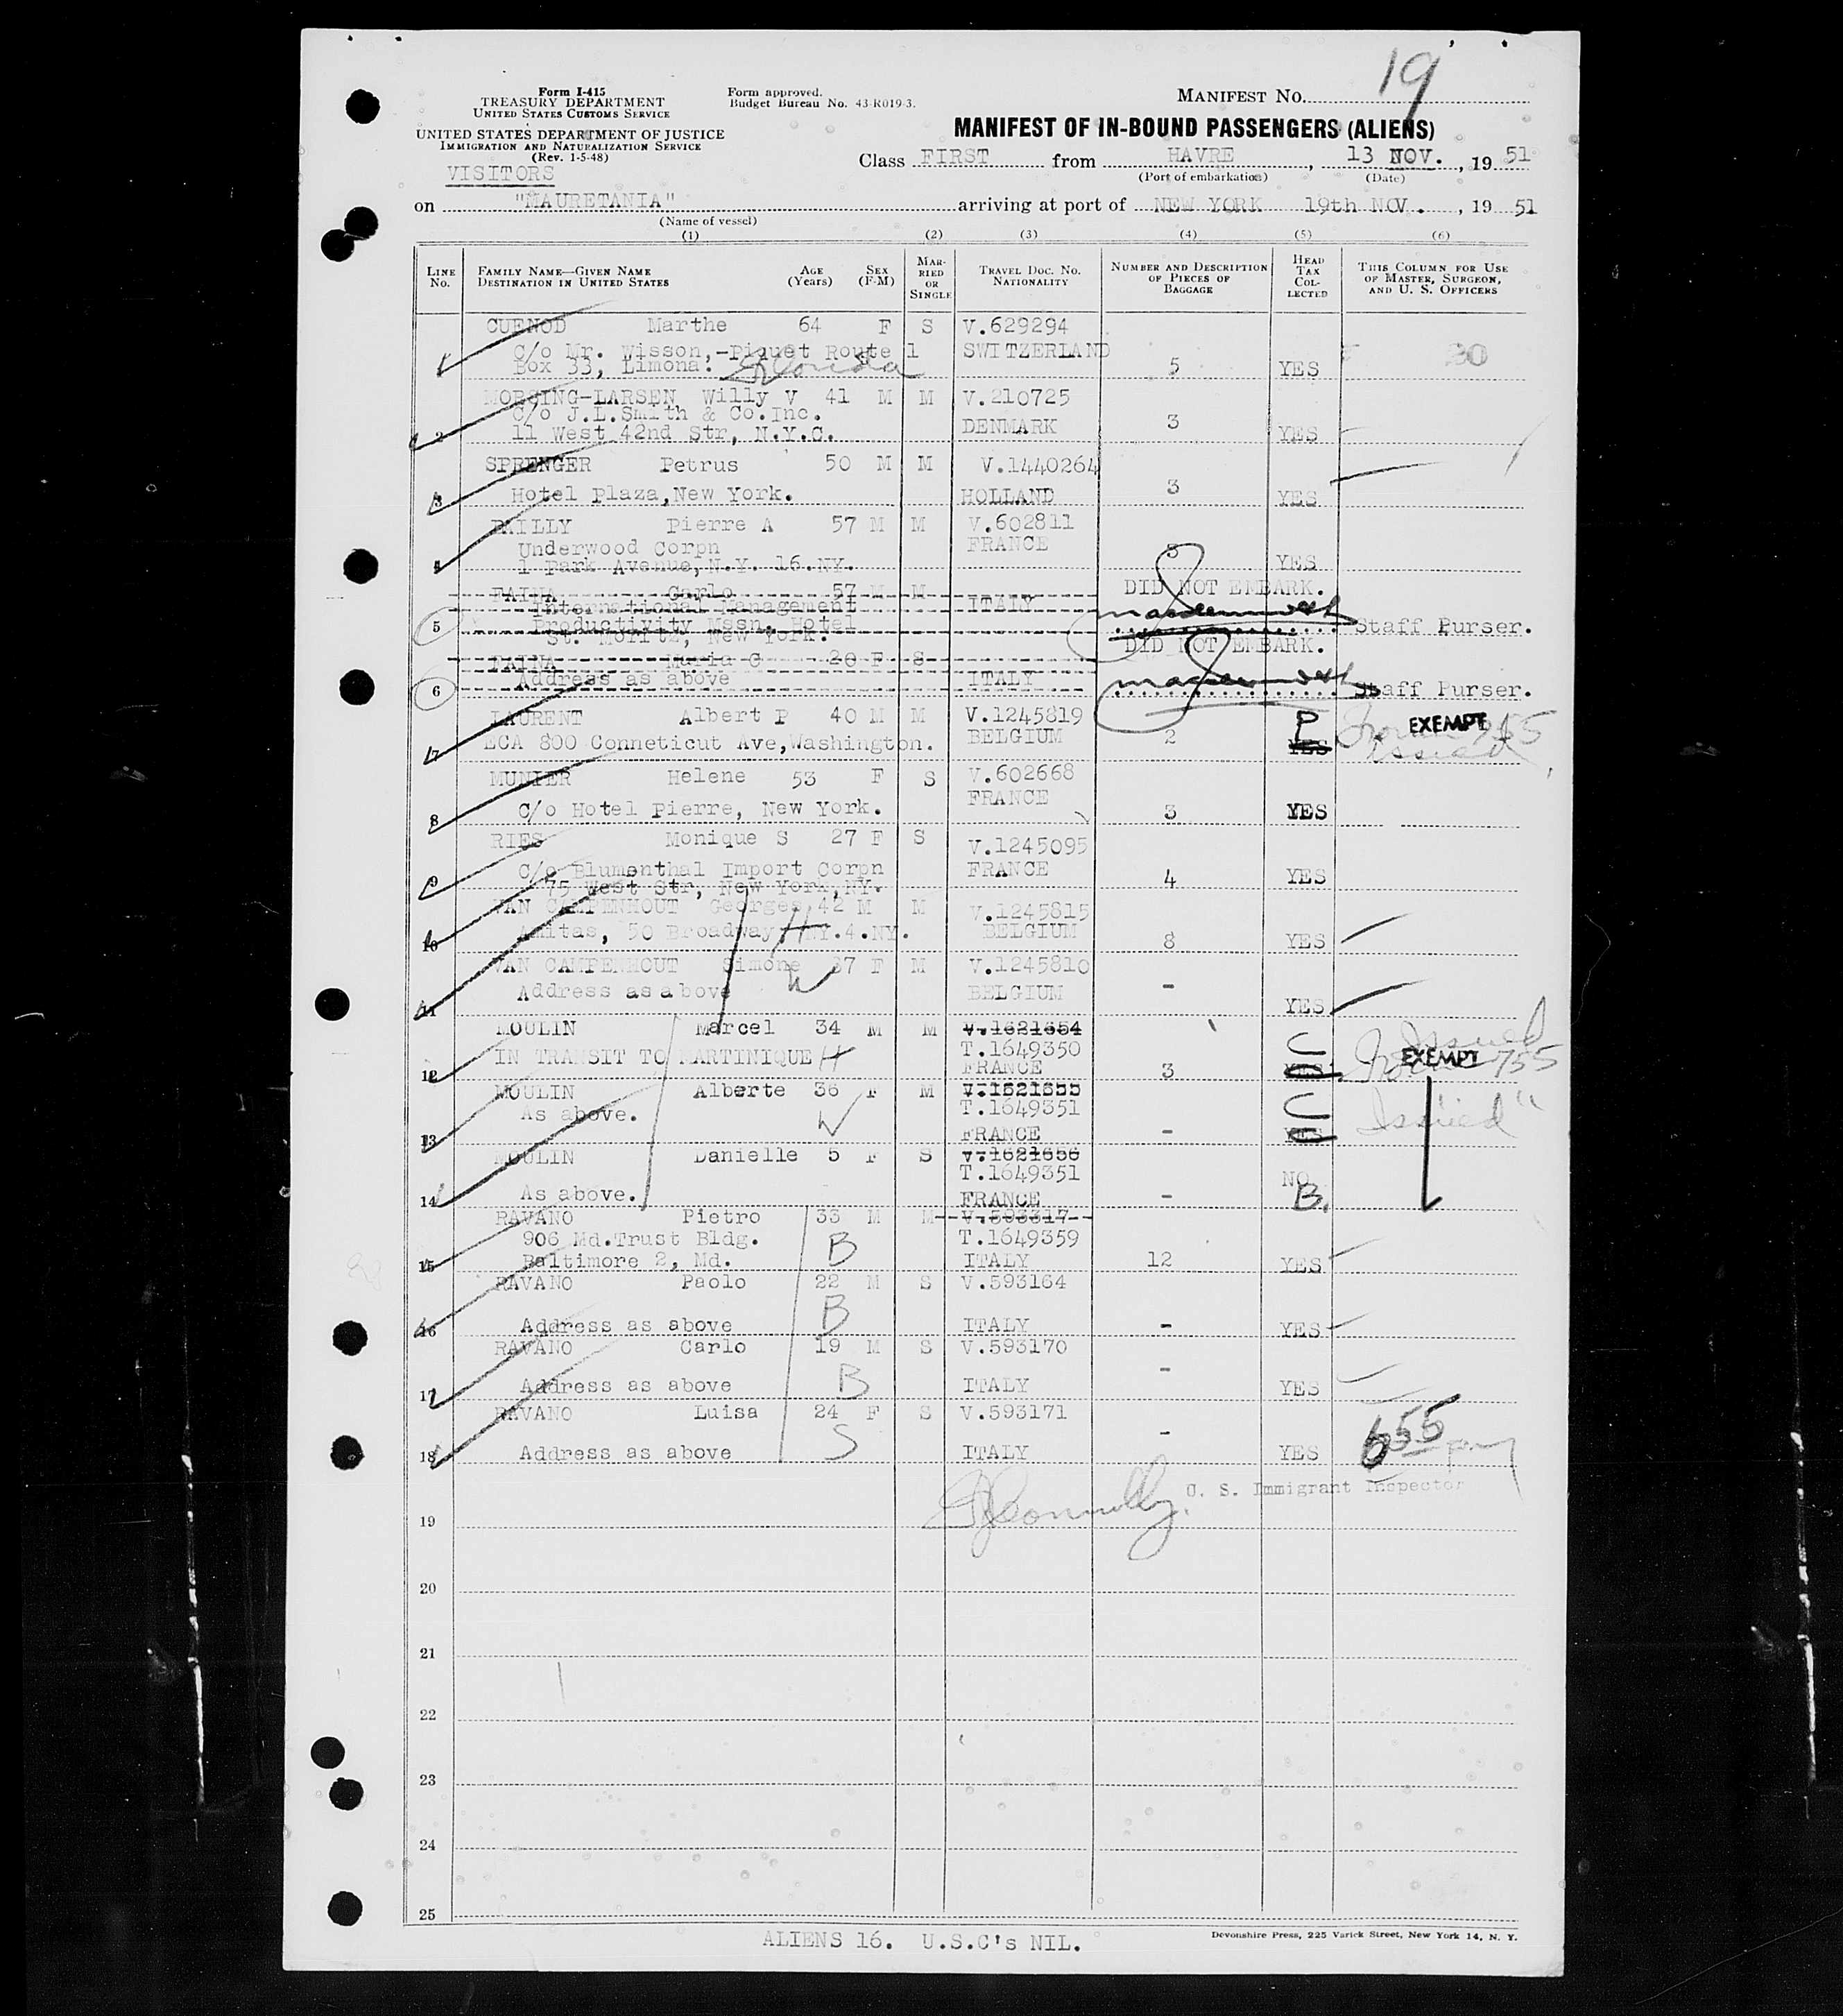 19
Form I-415
TREASURY DEPARTMENT
UNITED STATES CUSTOMS SERVICE
UNITED STATES DEPARTMENT OF JUSTICE
IMMIGRATION AND NATURALIZATION SERVICE
(Rev. 1-5-48)
VISITORS
Form approved.
Budget Bureau No. 43-R019.3.
MANIFEST NO.
MANIFEST OF IN-BOUND PASSENGERS (ALIENS)
Class FIRST from HAVRE, 13 NOV., 19 51
(Port of embarkation) (Date)
on "MAURETANIA" arriving at port of NEW YORK 19th NOV., 19 51
(Name of vessel)
(1) (2) (3) (4) (5) (6)
LINE NO. FAMILY NAME—GIVEN NAME DESTINATION IN UNITED STATES AGE (Years) SEX (F-M) MARRIED OR SINGLE TRAVEL DOC. NO. NATIONALITY NUMBER AND DESCRIPTION OF PIECES OF BAGGAGE HEAD TAX COLLECTED THIS COLUMN FOR USE OF MASTER, SURGEON, AND U. S. OFFICERS
CUENOD Marthe 64 F S V.629294
C/o Mr. Wisson,-Piquet Route 1 SWITZERLAND
1 Box 33, Limona. Florida 5 YES 30
MORSING-LARSEN Willy V 41 M M V.210725
C/o J.L.Smith & Co.Inc.
2 11 West 42nd Str, N.Y.C. DENMARK 3 YES
SPRENGER Petrus 50 M M V.1440264
3 Hotel Plaza,New York. HOLLAND 3 YES
BAILLY Pierre A 57 M M V.602811
Underwood Corpn FRANCE
4 1 Park Avenue,N.Y. 16.NY. 3 YES
FAINA Carlo 57 M M DID NOT EMBARK.
International Management ITALY
5 Productivity Mssn. Hotel Staff Purser.
St. Moritz, New York.
DID NOT EMBARK.
FAINA Maria C 20 F S
6 Address as above ITALY Staff Purser.
LAURENT Albert P 40 M M V.1245819 P EXEMPT
7 ECA 800 Conneticut Ave,Washington. BELGIUM 2 YES Form 755 issued
MUNIER Helene 53 F S V.602668
FRANCE
8 C/o Hotel Pierre, New York. 3 YES
RIES Monique S 27 F S V.1245095
9 C/o Blumenthal Import Corpn FRANCE 4 YES
75 West Str, New York,NY.
VAN CAMPENHOUT Georges 42 M M V.1245815
10 Amitas, 50 Broadway,NY.4.NY. H BELGIUM 8 YES
VAN CAMPENHOUT Simone 37 F M V.1245810
W
11 Address as above BELGIUM - YES
MOULIN Marcel 34 M M V.1621654
T.1649350 C Issued
12 IN TRANSIT TO MARTINIQUE H FRANCE 3 YES EXEMPT Form 755
MOULIN Alberte 36 F M V.1621655
As above. W T.1649351 C Issued "
13 FRANCE - YES
MOULIN Danielle 5 F S V.1621656
T.1649351 NO
14 As above. FRANCE - B.
RAVANO Pietro 33 M M V.593317
906 Md.Trust Bldg. B T.1649359
15 Baltimore 2, Md. ITALY 12 YES
RAVANO Paolo 22 M S V.593164
B
16 Address as above ITALY - YES
RAVANO Carlo 19 M S V.593170
17 Address as above B ITALY - YES
RAVANO Luisa 24 F S V.593171
18 Address as above S ITALY - YES 6 55 pm
U. S. Immigrant Inspector
19
20
21
22
23
24
25
ALIENS 16. U.S.C's NIL.
Devonshire Press, 225 Varick Street, New York 14, N. Y.